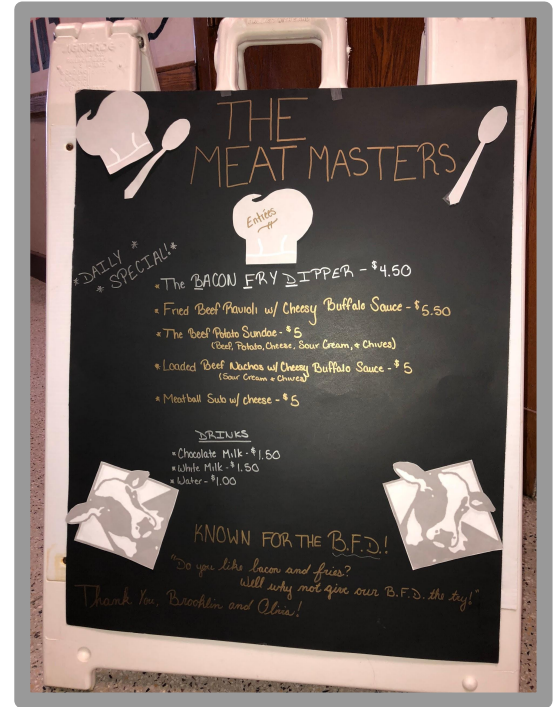 THE
MEAT MASTERS
Entrées
*DAILY *
* SPECIAL!*
* The BACON FRY DIPPER - $4.50
* Fried Beef Ravioli w/ Cheesy Buffalo Sauce - $5.50
* The Beef Potato Sundae - $5
(Beef, Potato, Cheese, Sour Cream, + Chives)
* Loaded Beef Nachos w/ Cheesy Buffalo Sauce - $5
(Sour Cream + Chives)
* Meatball Sub w/ cheese - $5
DRINKS
* Chocolate Milk - $1.50
* White Milk - $1.50
* Water - $1.00
KNOWN FOR THE B.F.D.!
"Do you like bacon and fries?
Well why not give our B.F.D. the try!"
Thank You, Brocklin and